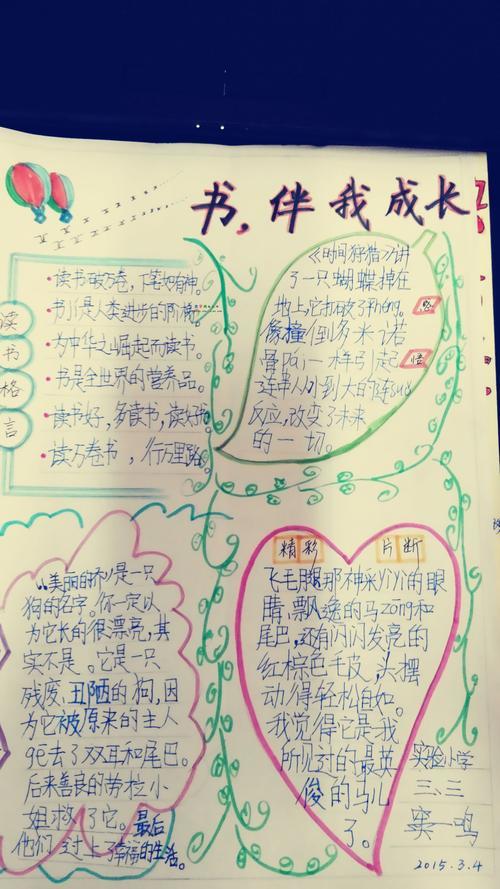 书,伴我成长
读书格言
读书破万卷,下笔如有神。
书儿是人类进步的阶梯。
为中华之崛起而读书。
书是全世界的营养品。
读书好,多读书,读好书
读万卷书,行万里路
《时间狩猎》讲
了一只蝴蝶掉在
地上,它打破了Pínɡ。
像撞倒多米诺
骨响一样引起
连串从小到大的连suǒ
反应,改变了未来
的一切。
感悟
美丽的莎莎是一只
狗的名字。你一定以
为它长的很漂亮,其
实不是。它是一只
残废、丑陋的狗,因
为它被原来的主人
ɡē去了双耳和尾巴。
后来善良的劳拉小
姐救了它。最后
他们过上了幸福的生活。
精彩 片断
飞毛腿那神采yìyì的眼
睛,飘逸的马zōnɡ和
尾巴,还有闪闪发亮的
红棕色毛皮,头摆
动得轻松自如。
我觉得它是我
所见过的最英
俊的马儿
了。
实验小学
三、三
窦一鸣
2015.3.4